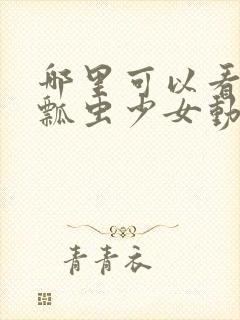 哪里可以看
瓢虫少女動
青青衣